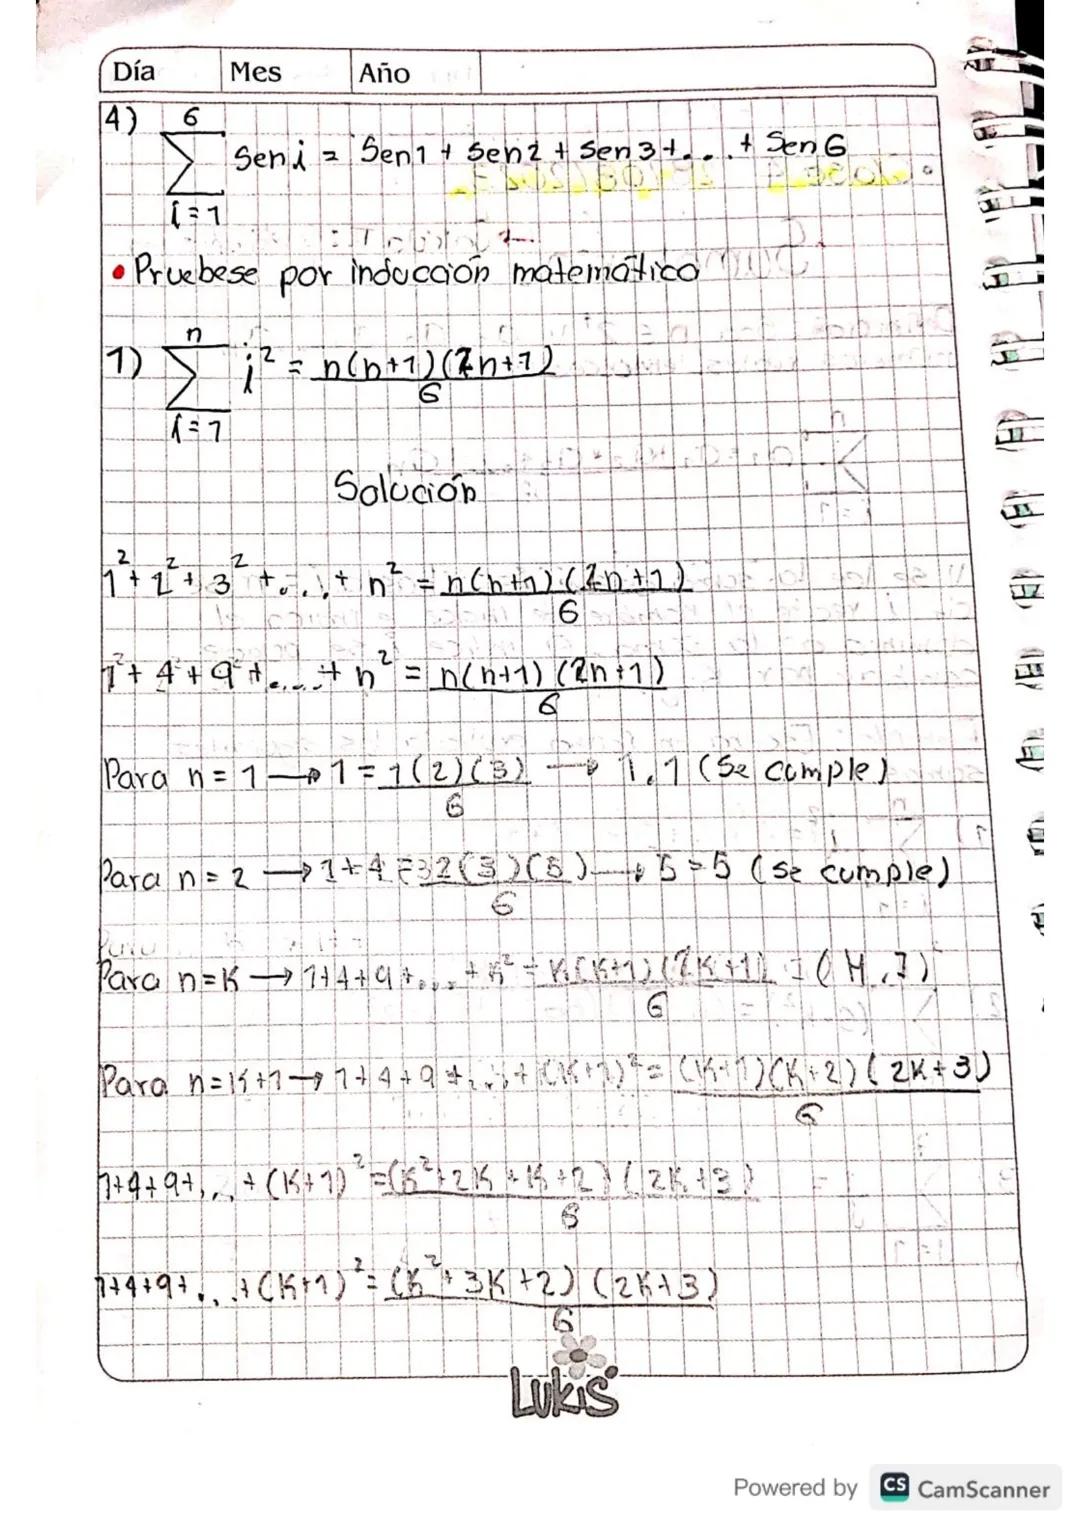 Día Mes Año
4) 6
∑ Sen i = Sen1 + Sen2 + Sen3+... + Sen6
i=1
• Pruebese por inducción matemático
n
1) ∑ i² = n(n+1)(2n+1)
6
i=1
Solución
1² + 2² + 3² + ... + n² = n(n+1)(2n+1)
6
1² + 4 + 9 + .... + n² = n(n+1)(2n+1)
6
Para n=1 → 1 = 1(2)(3) → 1,1 (Se cumple)
6
Para n=2 → 1+4 = 2(3)(5) → 5=5 (se cumple)
6
Para n=K → 1+4+9+... + K² = K(K+1)(2K+1) = (H.I)
6
Para n=K+1 → 1+4+9+...+(K+1)² = (K+1)(K+2)(2K+3)
6
1+4+9+... + (K+1)² = (K²+2K+K+2)(2K+3)
6
1+4+9+...+(K+1)² = (K²+3K+2)(2K+3)
6
LUKIS
Powered by CS CamScanner